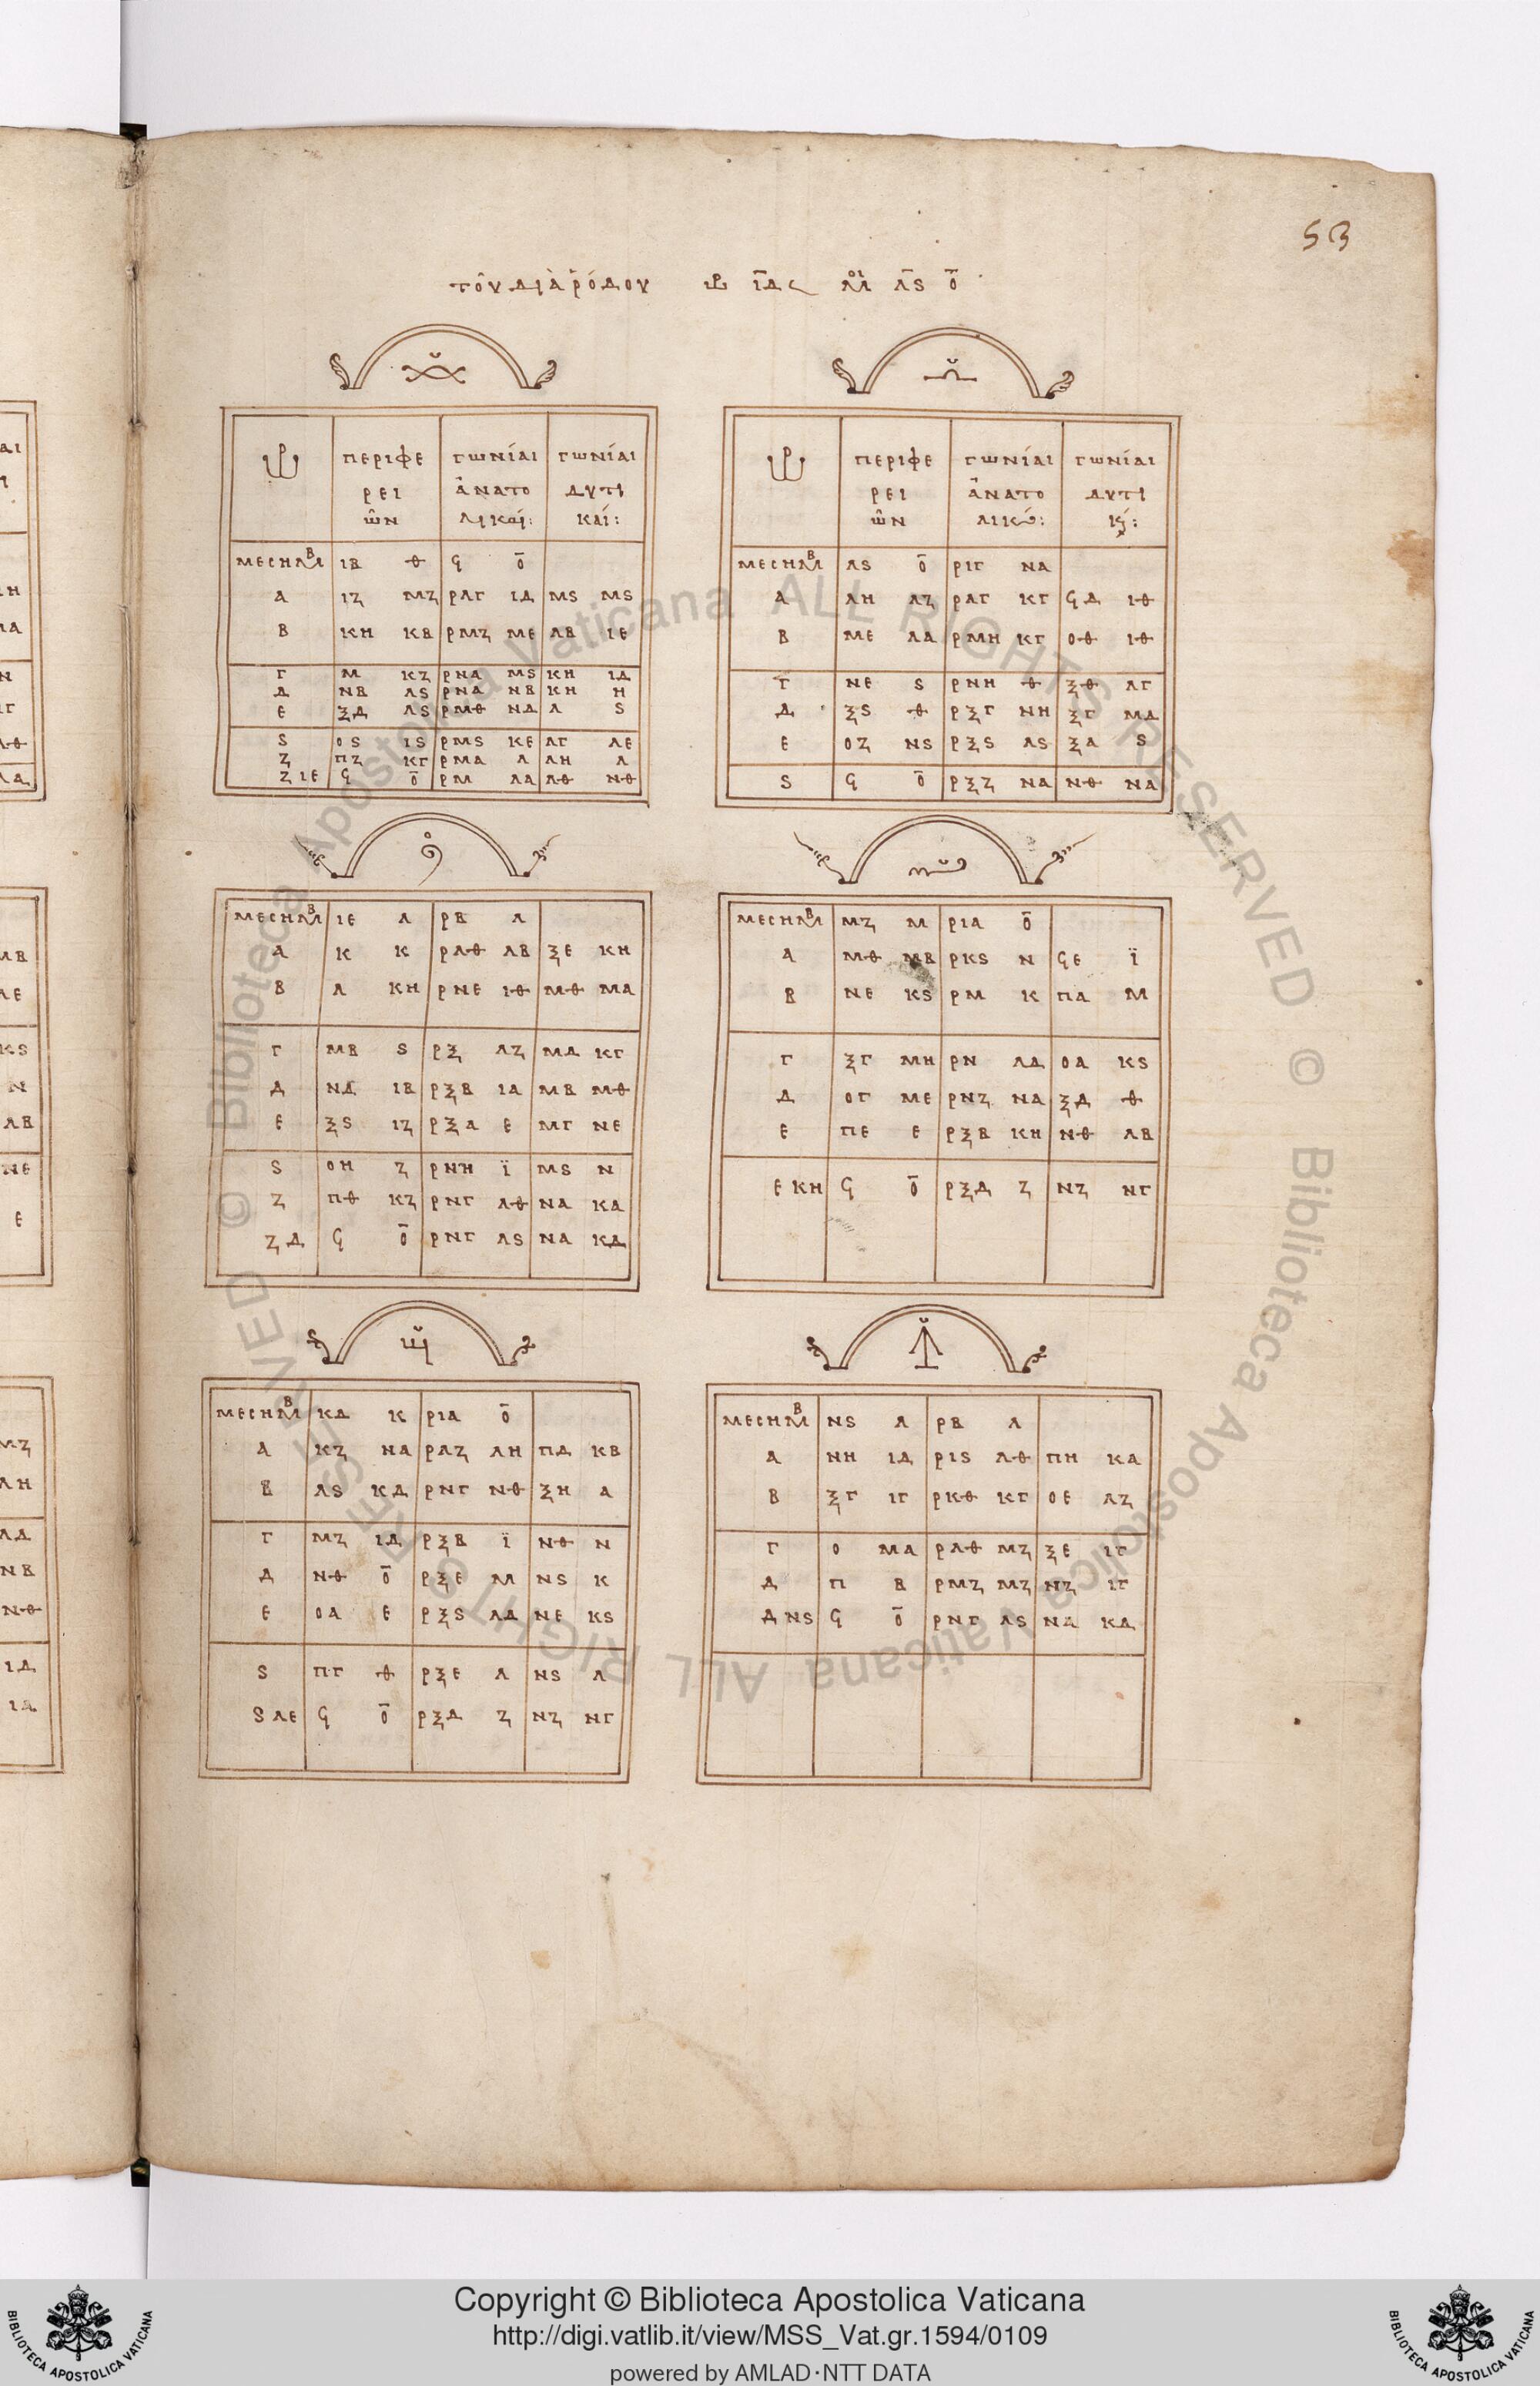 53
τοῦ διὰ ῥόδου ὡρ ιδ 𐅵 μοι λϛ ō
ὡρ περιφε γωνίαι γωνίαι
ρει ἀνατο δυτι
ῶν λικαί: καί:
μεσημβ ιβ θ ϙ ō
α ιζ μζ ρλγ ιδ μϛ μϛ
β κη κβ ρμζ με λβ ιε
γ μ κζ ρνα μϛ κη ιδ
δ νβ λϛ ρνα νβ κη η
ε ξδ λϛ ρμθ νδ λ ϛ
ϛ οϛ ιϛ ρμϛ κε λγ λε
ζ πζ κγ ρμα λ λη λ
ζ ιε ϙ ō ρμ λα λθ νθ
ὡρ περιφε γωνίαι γωνίαι
ρει ἀνατο δυτι
ῶν λικαί: καί:
μεσημβ λϛ ō ριγ να
α λη λζ ρλγ κγ ϙδ ιθ
β με λα ρμη κγ οθ ιθ
γ νε ϛ ρνη θ ξθ λγ
δ ξϛ θ ρξγ νη ξγ μδ
ε οζ νϛ ρξϛ λϛ ξα ϛ
ϛ ϙ ō ρξζ να νθ να
μεσημβ ιε λ ρβ λ
α κ κ ρλθ λβ ξε κη
β λ κη ρνε ιθ μθ μα
γ μβ ϛ ρξ λζ μδ κγ
δ νδ ιβ ρξβ ια μβ μθ
ε ξϛ ιζ ρξα ε μγ νε
ϛ οη ζ ρνη ϊ μϛ ν
ζ πθ κζ ρνγ λθ να κα
ζ δ ϙ ō ρνγ λϛ να κδ
μεσημβ μζ μ ρια ō
α μθ μβ ρκϛ ν ϙε ϊ
β νε κϛ ρμ κ πα μ
γ ξγ μη ρν λδ οα κϛ
δ ογ με ρνζ να ξδ θ
ε πε ε ρξβ κη νθ λβ
ε κη ϙ ō ρξδ ζ νζ νγ
μεσημβ κδ κ ρια ō
α κζ να ρλζ λη πδ κβ
β λϛ κδ ρνγ νθ ξη α
γ μζ ιδ ρξβ ϊ νθ ν
δ νθ ō ρξε μ νϛ κ
ε οα ε ρξϛ λδ νε κϛ
ϛ πγ θ ρξε λ νϛ λ
ϛ λε ϙ ō ρξδ ζ νζ νγ
μεσημβ νϛ λ ρβ λ
α νη ιδ ριϛ λθ πη κα
β ξγ ιγ ρκθ κγ οε λζ
γ ο μα ρλθ μζ ξε ιγ
δ π β ρμζ μζ νζ ιγ
δ νϛ ϙ ō ρνγ λϛ να κδ
Copyright © Biblioteca Apostolica Vaticana
http://digi.vatlib.it/view/MSS_Vat.gr.1594/0109
powered by AMLAD·NTT DATA